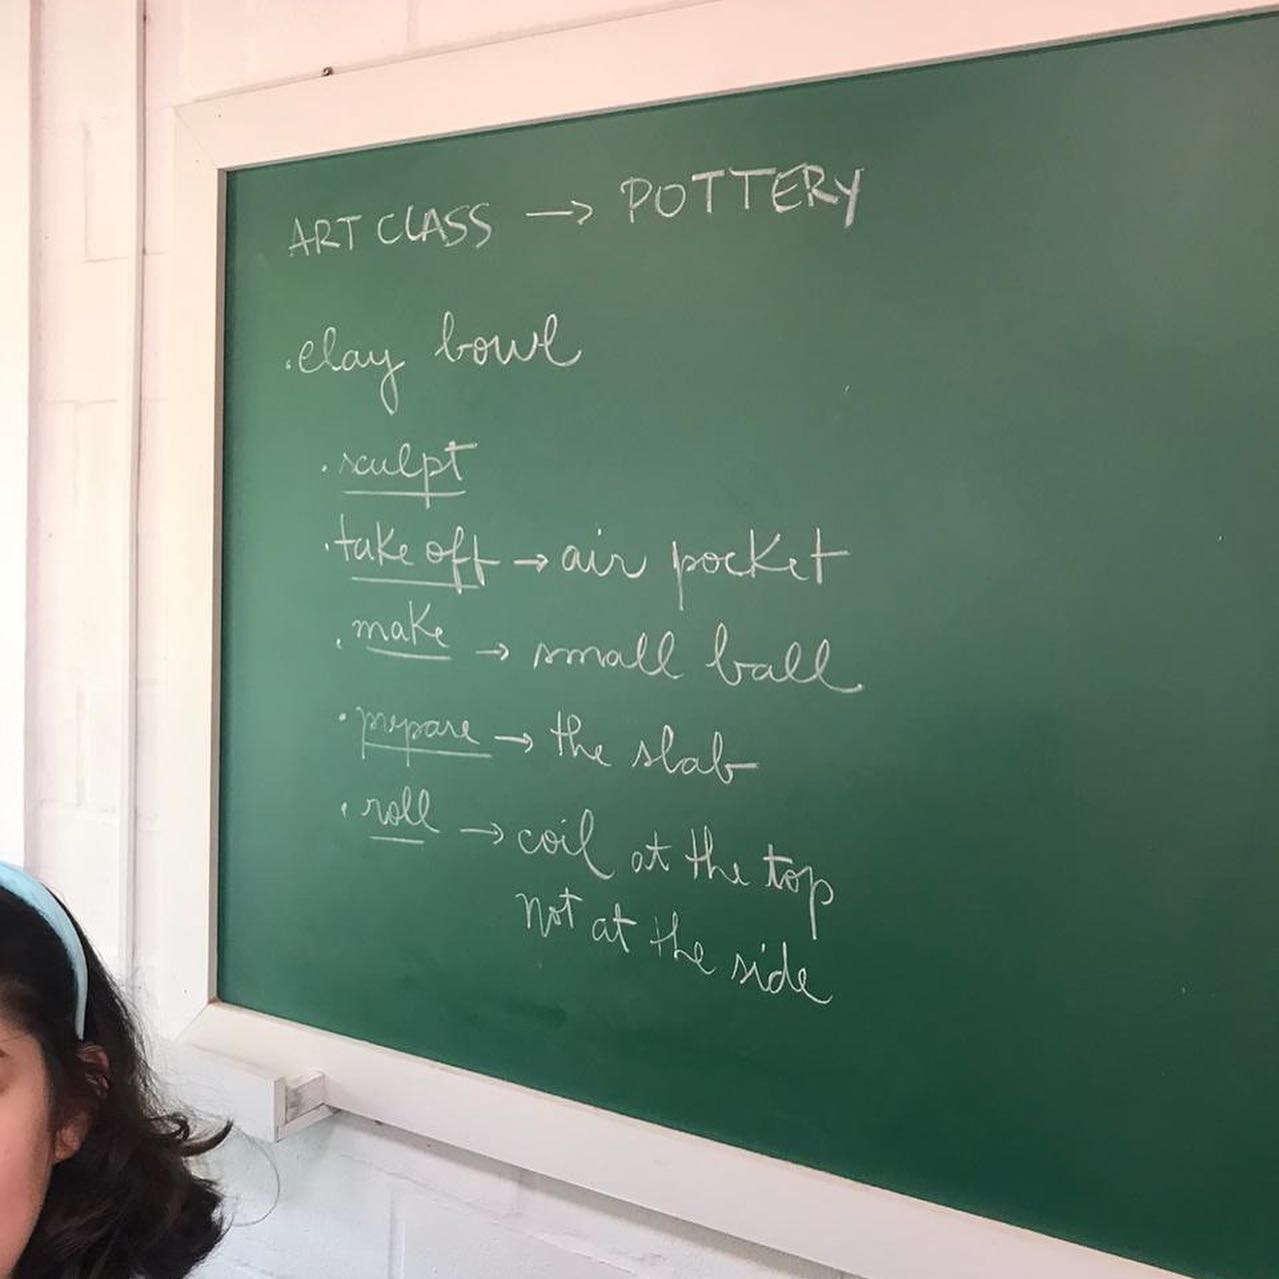 ART CLASS → POTTERY
. clay bowl
. sculpt
. take off → air pocket
. make → small ball
. prepare → the slab
. roll → coil at the top
not at the side